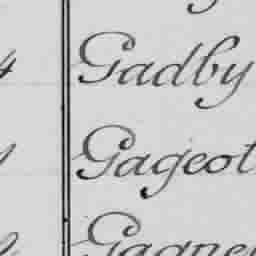 4 Gadby
Gageot
Gagne